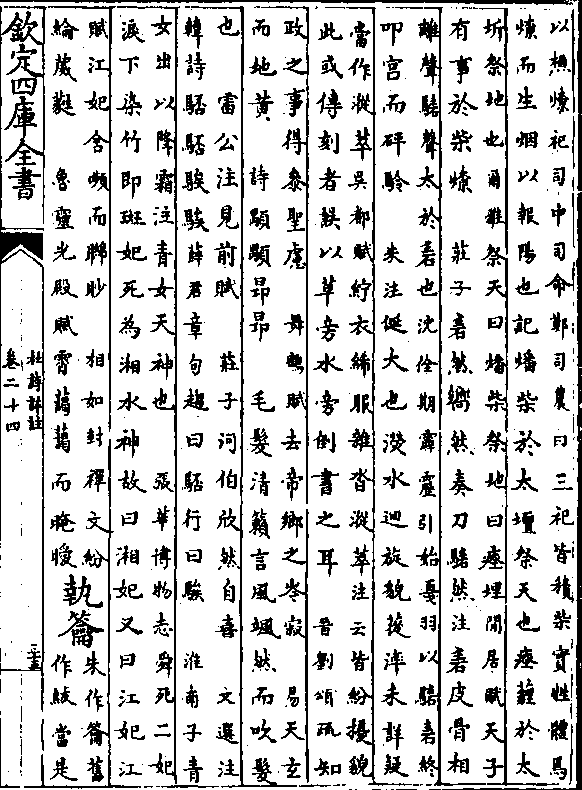 以槱燎祀司中司命鄭司農曰三祀皆積柴實牲體焉
燎而生烟以報陽也記燔柴於太壇祭天也瘞薶於太
圻祭地也爾雅祭天曰燔柴祭地曰瘞埋閒居賦天子
有事於柴燎　莊子砉然嚮然奏刀騞然注砉皮骨相
離聲騞聲大於砉也沈佺期霹靂引始戛羽以騞砉終
叩宮而砰駖　朱注侹大也漎水迴旋貌漎淬未詳疑
當作漎萃吳都賦紵衣絺服雜沓漎萃注云皆紛擾貌
此或傳刻者誤以草旁水旁倒書之耳　晉劉頌疏知
政之事得叅聖慮　舞鶴賦去帝鄉之岑寂　易天玄
而地黃　詩顒顒昂昂　毛髮清籟言風颯然而吹髮
也　雷公注見前賦　莊子河伯欣然自喜　文選注
韓詩騞騞駿駿薛君章句趨曰騞行曰駿　淮南子青
女出以降霜注青女天神也　張華博物志舜死二妃
淚下染竹即斑妃死為湘水神故曰湘妃又曰江妃江
賦江妃含嚬而矊眇　相如封禪文紛綸葳蕤　魯靈光殿賦霄藹藹而晻曖
執籥朱作籥舊作紱當是
欽定四庫全書
杜詩詳註
卷二十四